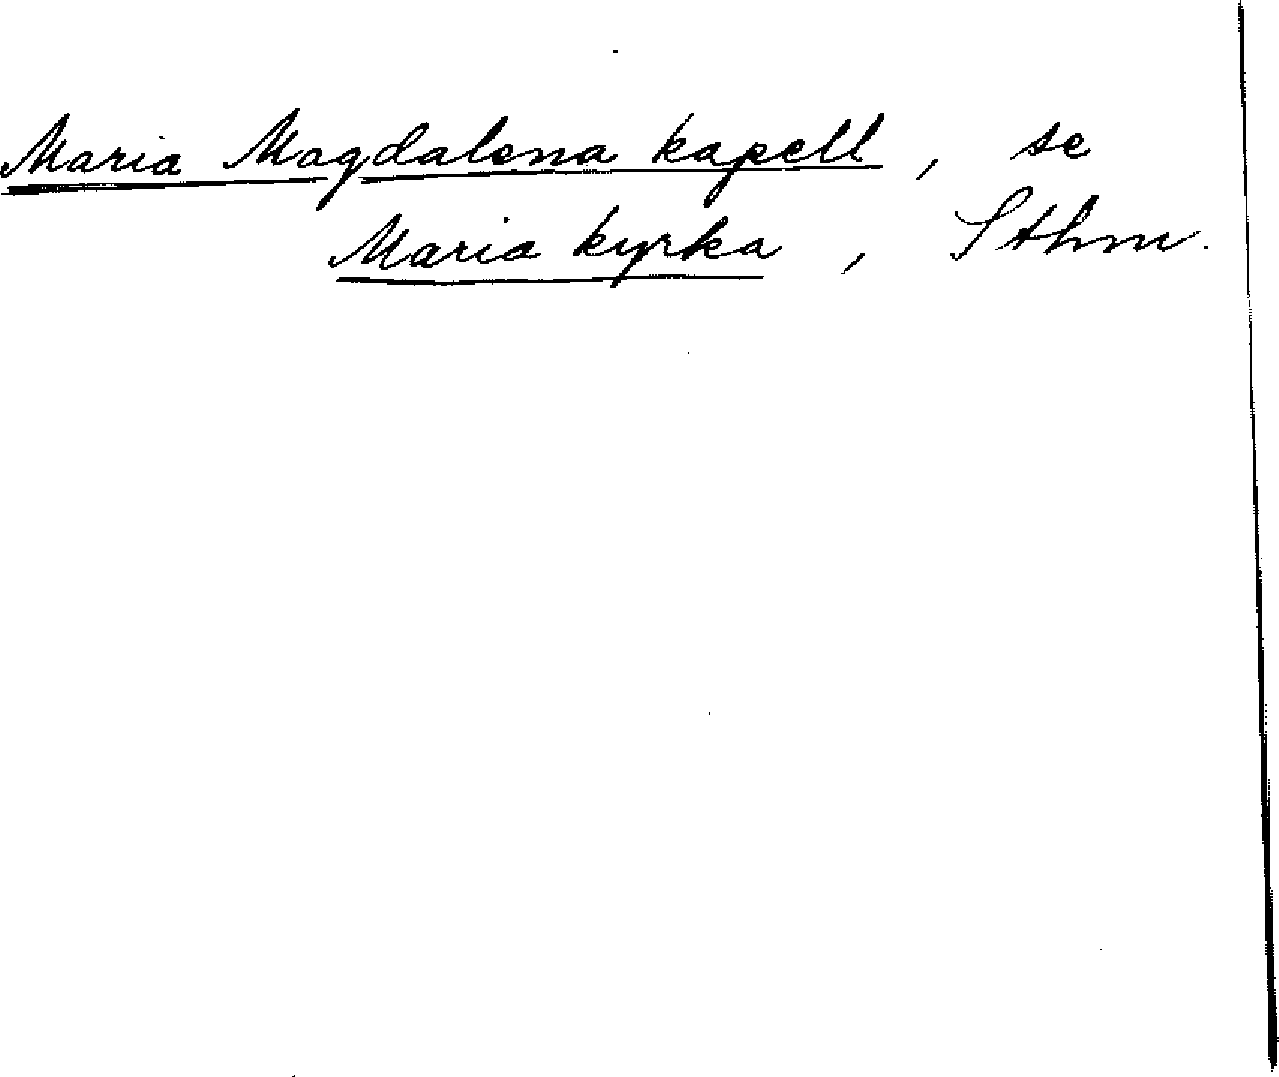 Maria Magdalena kapell, se
Maria kyrka, Sthm.